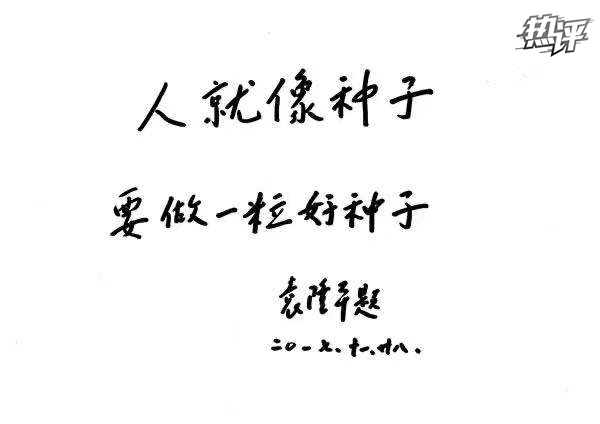 热评
人就像种子
要做一粒好种子
袁隆平题
二〇一七.十一.廿八.